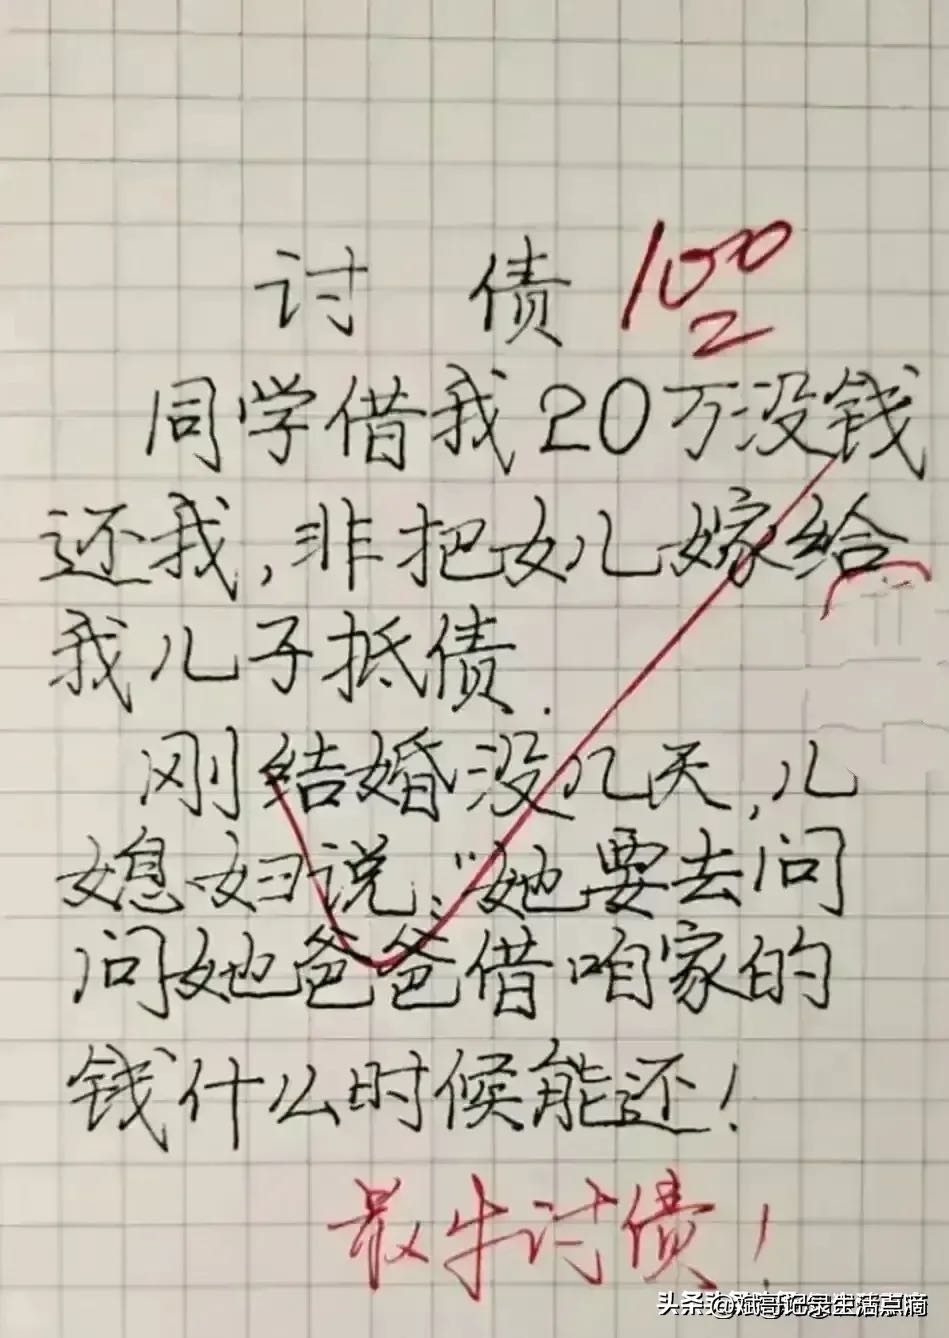 讨 债 100
2
同学借我20万没钱
还我,非把女儿嫁给
我儿子抵债.
刚结婚没几天,儿
媳妇说:“她要去问
问她爸爸借咱家的
钱什么时候能还!
最牛讨债!
头条@斌哥记录生活点滴